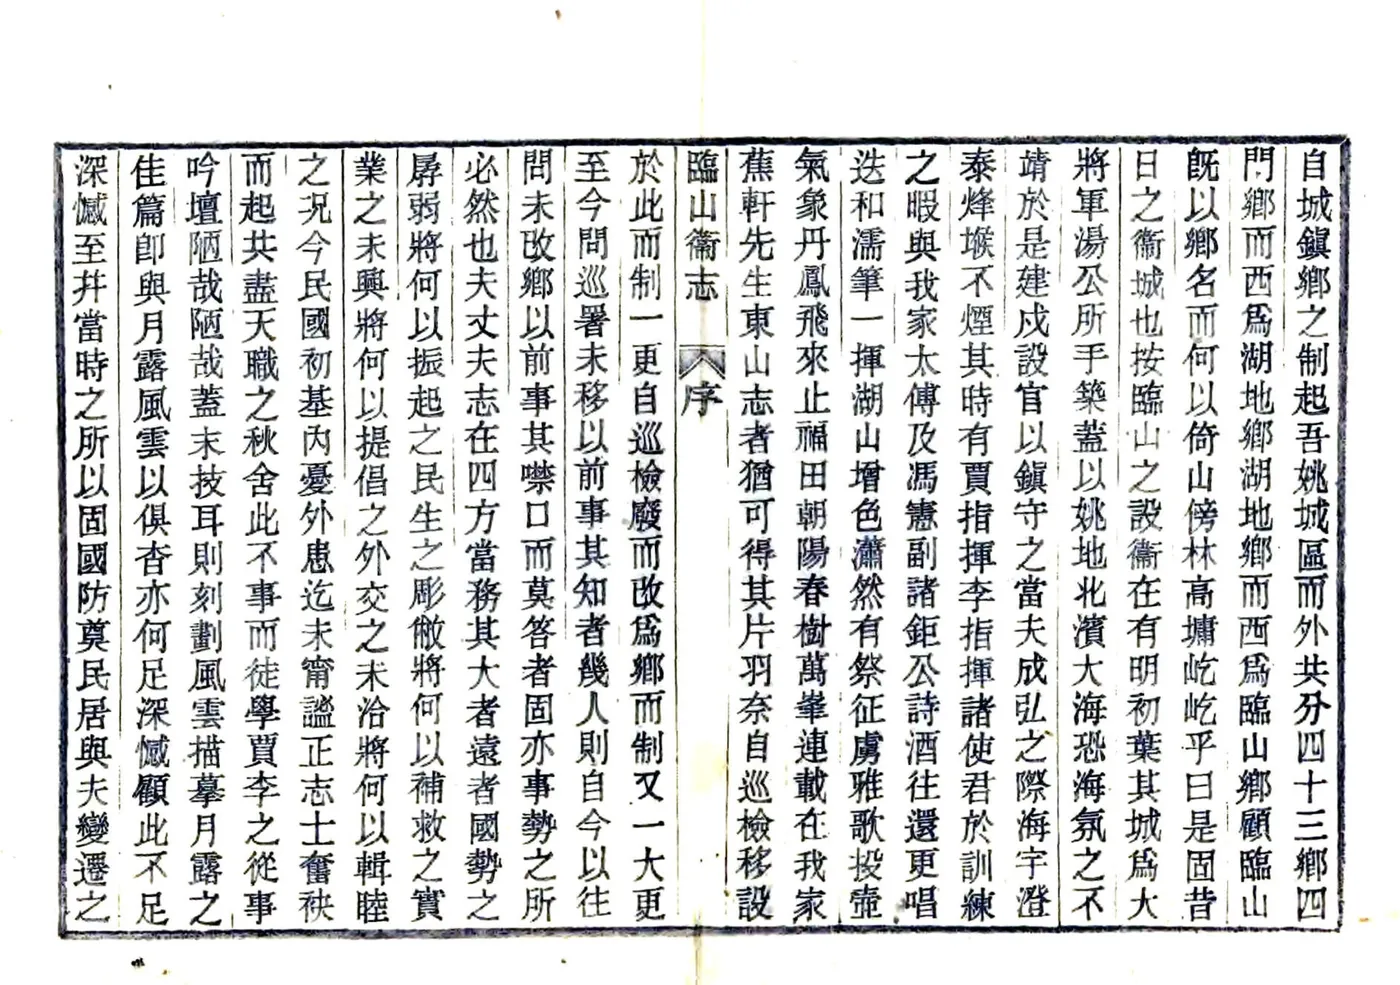 自城鎭鄉之制起吾姚城區而外共分四十三鄉四
門鄉而西爲湖地鄉湖地鄉而西爲臨山鄉顧臨山
旣以鄉名而何以倚山傍林高墉屹屹乎曰是固昔
日之衞城也按臨山之設衞在有明初葉其城爲大
將軍湯公所手築蓋以姚地北濱大海恐海氛之不
靖於是建戍設官以鎭守之當夫成弘之際海宇澄
泰烽堠不煙其時有賈指揮李指揮諸使君於訓練
之暇與我家太傅及馮憲副諸鉅公詩酒往還更唱
迭和濡筆一揮湖山增色瀟然有祭征虜雅歌投壺
氣象丹鳳飛來止福田朝陽春樹萬峯連載在我家
蕉軒先生東山志者猶可得其片羽奈自巡檢移設
臨山衞志 序
於此而制一更自巡檢廢而改爲鄉而制又一大更
至今問巡署未移以前事其知者幾人則自今以往
問未改鄉以前事其噤口而莫答者固亦事勢之所
必然也夫丈夫志在四方當務其大者遠者國勢之
孱弱將何以振起之民生之彫敝將何以補救之實
業之未興將何以提倡之外交之未洽將何以輯睦
之況今民國初基內憂外患迄未甯謐正志士奮袂
而起共盡天職之秋舍此不事而徒學賈李之從事
吟壇陋哉陋哉蓋末技耳則刻劃風雲描摹月露之
佳篇卽與月露風雲以俱杳亦何足深憾顧此不足
深憾至幷當時之所以固國防奠民居與夫變遷之